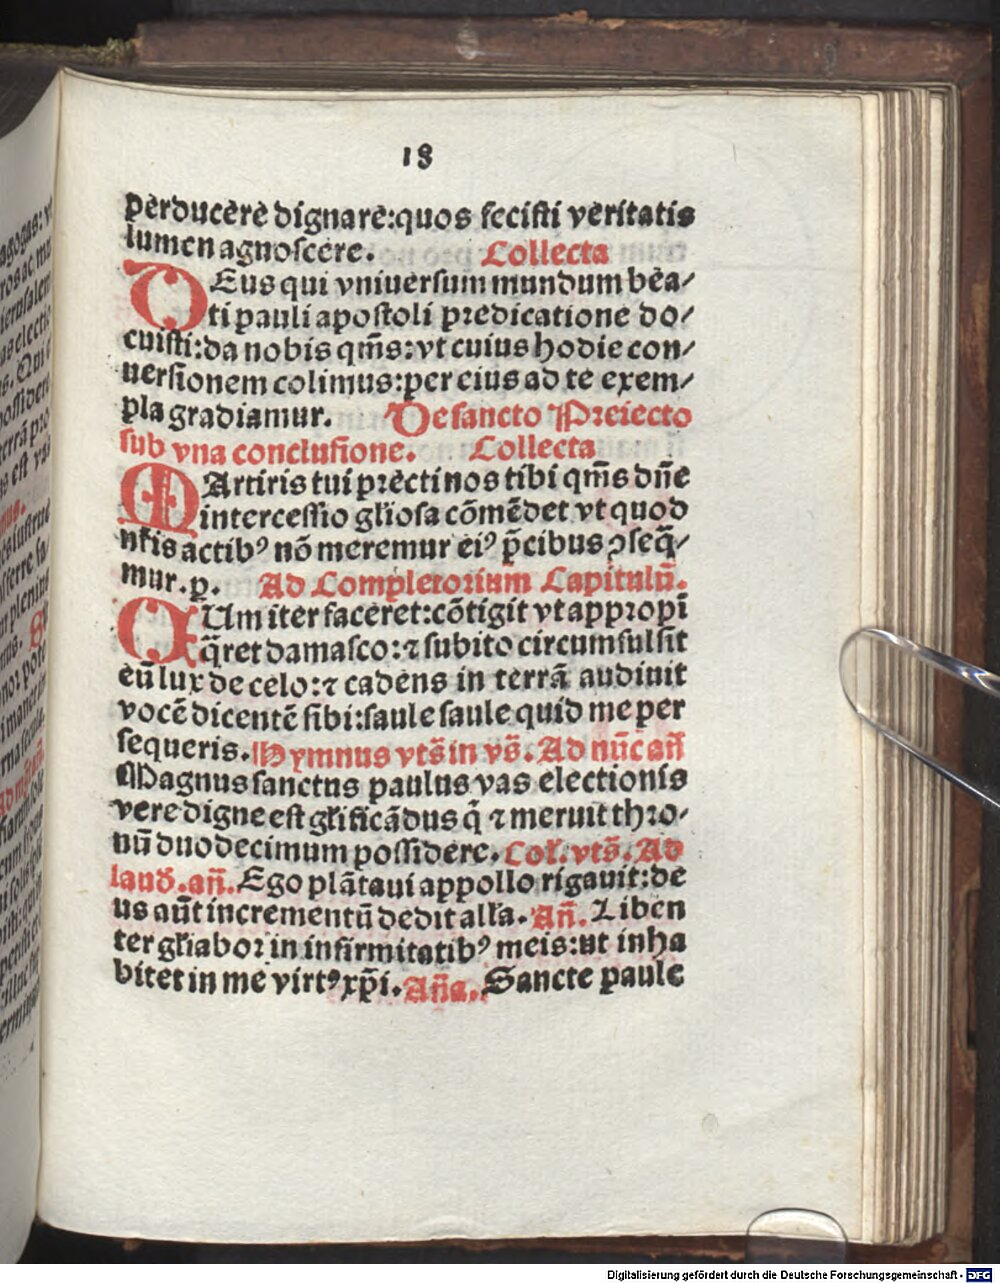 18
perducere dignare:quos fecisti veritatis
lumen agnoscere. Collecta
DEus qui vniuersum mundum bea/
ti pauli apostoli predicatione do/
cuisti:da nobis qm̄s:vt cuius hodie con/
uersionem colimus:per eius ad te exem/
pla gradiamur. De sancto Preiecto
sub vna conclusione. Collecta
MArtiris tui precti nos tibi qm̄s dn̄e
intercessio gl̄iosa cōmēdet vt quod
nr̄is actibꝰ nō meremur eiꝰ p̄cibus ꝯseq̄/
mur.p. Ad Completorium Capitulū.
CUm iter faceret:cōtigit vt appropi
q̄ret damasco:⁊ subito circumfulsit
eū lux de celo:⁊ cadens in terrā audiuit
vocē dicentē sibi:saule saule quid me per
sequeris. Hymnus vts̄ in vs̄. Ad nūc an̄
Magnus sanctus paulus vas electionis
vere digne est gl̄ificādus q̄ ⁊ meruit thro/
nū duodecimum possidere. Col̄. vts̄. Ad
laud̄.an̄. Ego plātaui appollo rigauit:de
us aūt incrementū dedit all̄a. An̄. Liben
ter gl̄iabor in infirmitatibꝰ meis:ut inha
bitet in me virtꝰ xp̄i. An̄a. Sancte paule
agogas: v
ros ac mu
ierusalem
as electio
s. Qui
possidere
terrā pro
s est vas
Digitalisierung gefördert durch die Deutsche Forschungsgemeinschaft - DFG